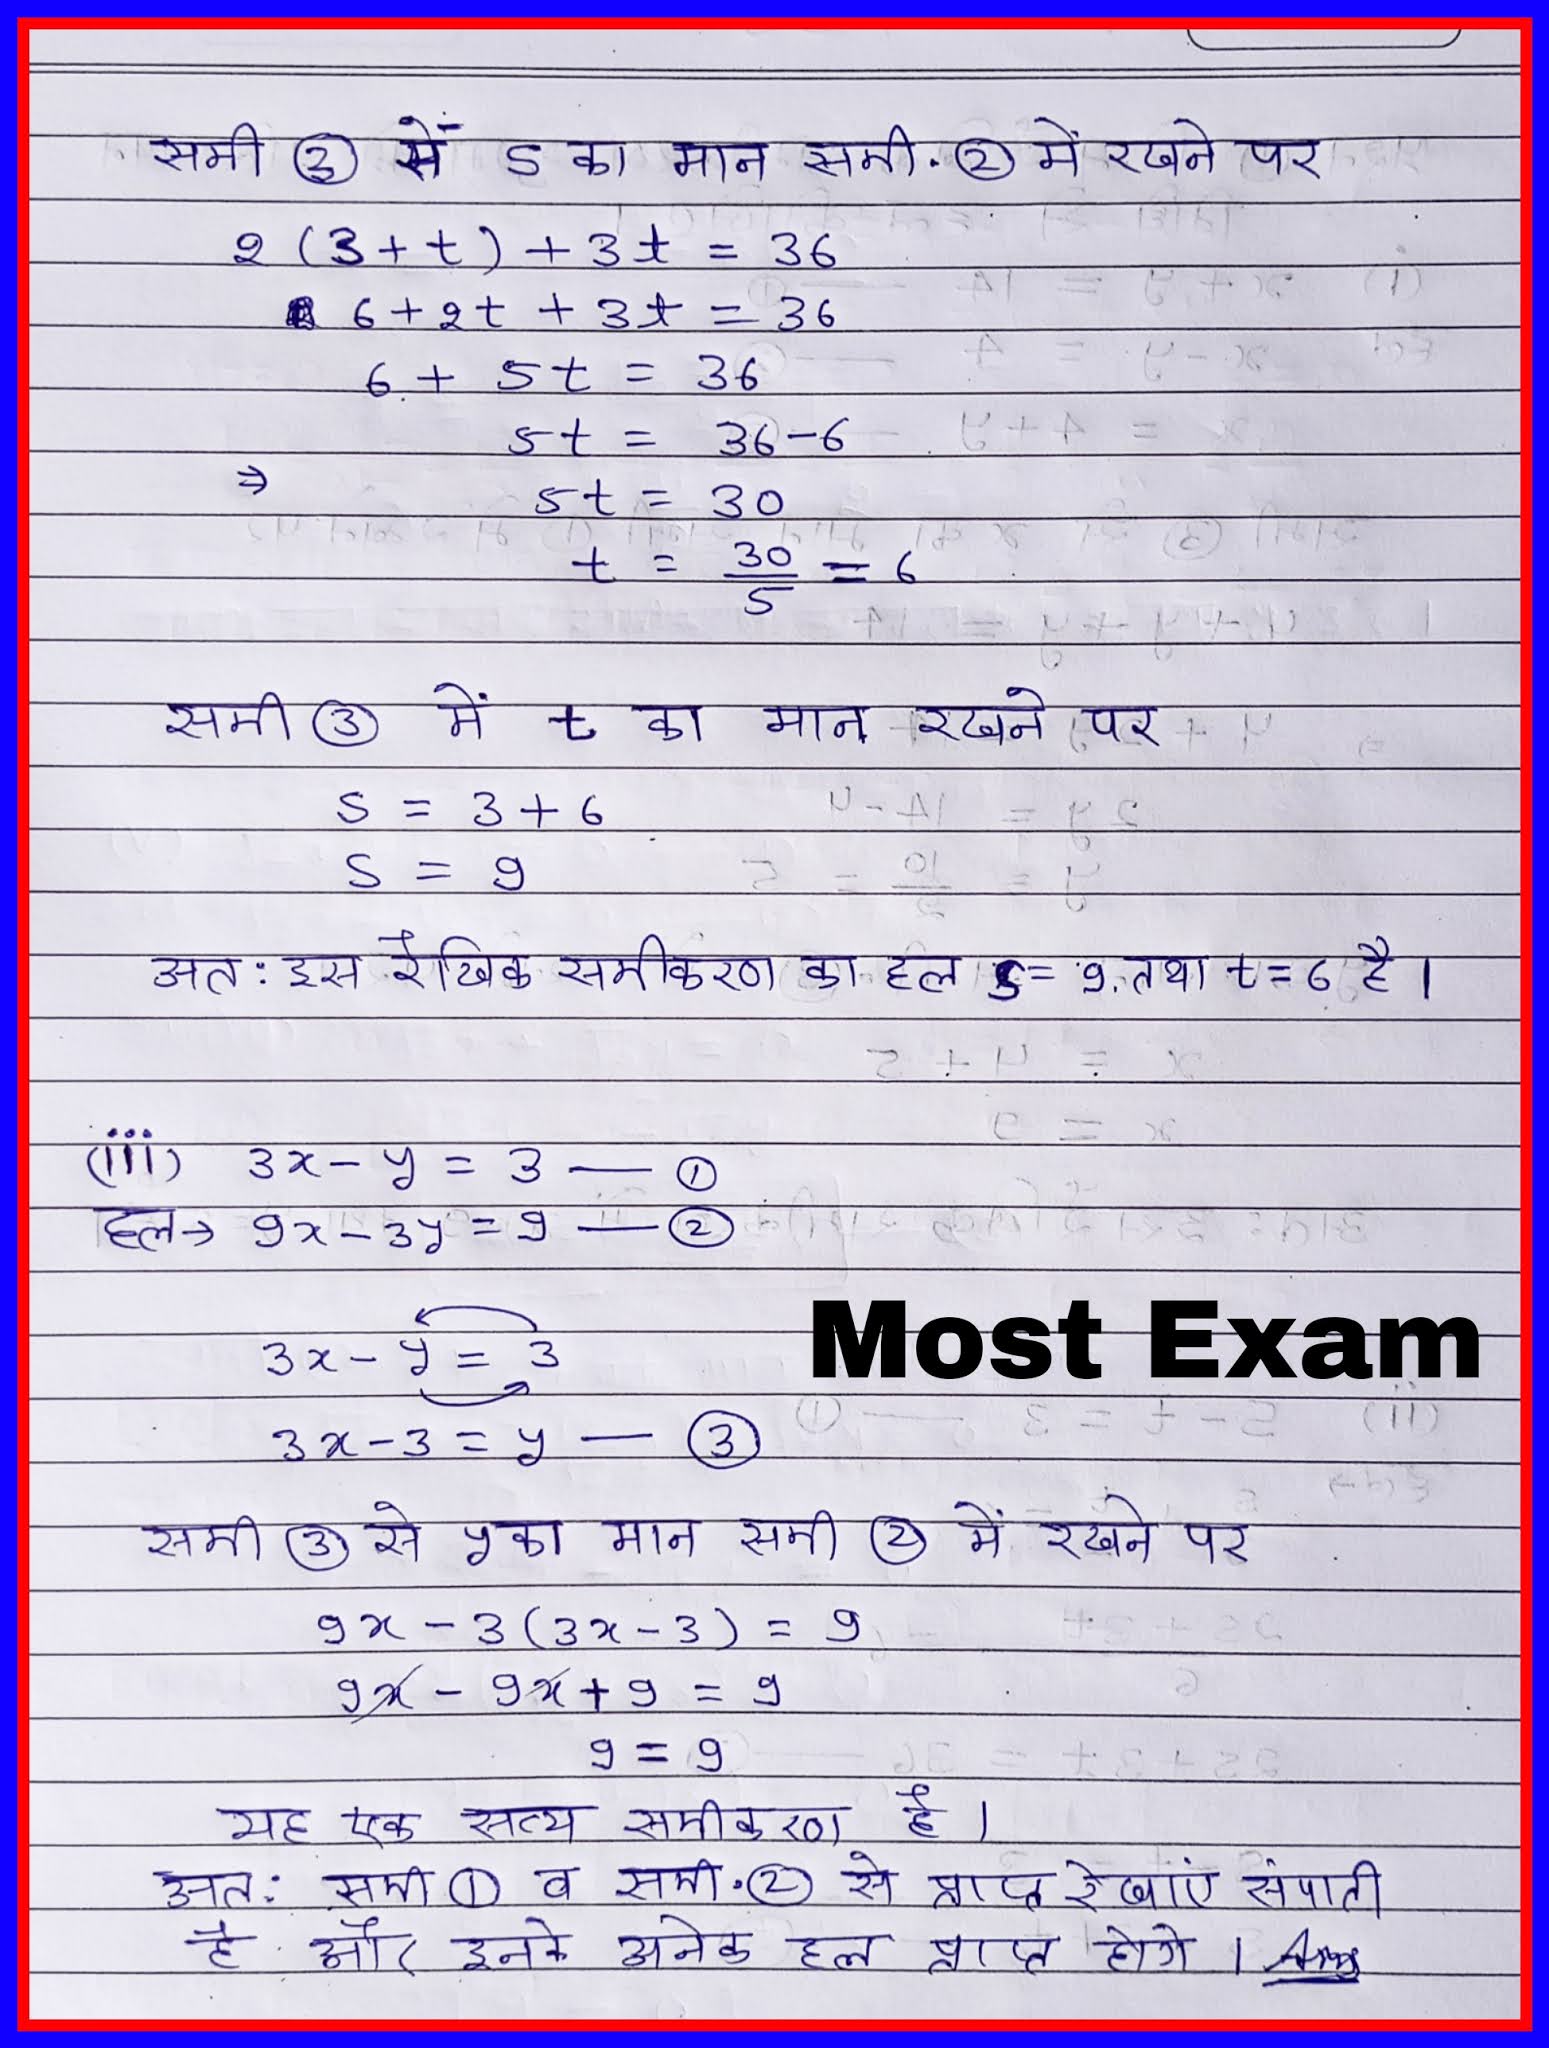 समी ③ से S का मान समी.② में रखने पर
2 (3+t) + 3t = 36
6+2t + 3t = 36
6 + 5t = 36
5t = 36-6
⇒ 5t = 30
t = 30/5 = 6
समी ③ में t का मान रखने पर
S = 3+6
S = 9
अत: इस रैखिक समीकरण का हल S= 9 तथा t=6 है।
(iii) 3x-y = 3 — ①
हल→ 9x-3y=9 — ②
3x-y = 3
Most Exam
3x-3 = y — ③
समी ③ से y का मान समी ② में रखने पर
9x - 3(3x-3) = 9
9x - 9x + 9 = 9
9 = 9
यह एक सत्य समीकरण है।
अत: समी ① व समी.② से प्राप्त रेखाएं संपाती
है और इनके अनेक हल प्राप्त होगे। Ans